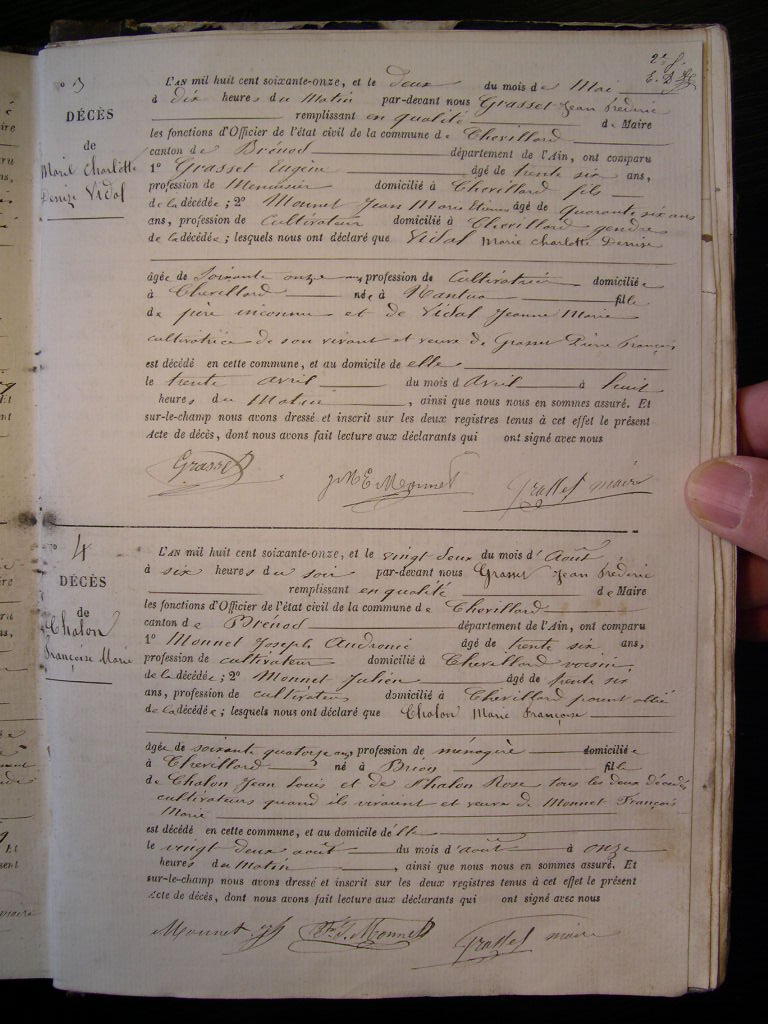 2e f.
N° 3
DÉCÈS
de
Marie Charlotte
Denise Vidal
L'AN mil huit cent soixante-onze, et le deux du mois de Mai
à dix heures du Matin par-devant nous Grasset Jean Fréderic
remplissant en qualité de Maire
les fonctions d'Officier de l'état civil de la commune de Chevillard
canton de Brénod département de l'Ain, ont comparu
1° Grasset Eugène âgé de trente six ans,
profession de Menuisier domicilié à Chevillard fils
de la décédée; 2° Monnet Jean Marie Etienne âgé de quarante six ans
ans, profession de Cultivateur domicilié à Chevillard gendre
de la décédée; lesquels nous ont déclaré que Vidal Marie Charlotte Dennise
âgée de Soixante onze ans, profession de Cultivatrice domiciliée
à Chevillard née à Nantua fille
de père inconnu et de Vidal Jeanne Marie
cultivatrice de son vivant et veuve de Grasset Pierre François
est décédé en cette commune, et au domicile de elle
le trente avril du mois d'Avril à huit
heures du Matin, ainsi que nous nous en sommes assuré. Et
sur-le-champ nous avons dressé et inscrit sur les deux registres tenus à cet effet le présent
Acte de décès, dont nous avons fait lecture aux déclarants qui ont signé avec nous
Grasset J M E Monnet Grasset maire
N° 4
DÉCÈS
de
Chalon
Françoise Marie
L'AN mil huit cent soixante-onze, et le vingt deux du mois d'Août
à six heures du soir par-devant nous Grasset Jean Fréderic
remplissant en qualité de Maire
les fonctions d'Officier de l'état civil de la commune de Chevillard
canton de Brénod département de l'Ain, ont comparu
1° Monnet Joseph Andronic âgé de trente six ans,
profession de cultivateur domicilié à Chevillard voisin
de la décédée; 2° Monnet Julien âgé de trente six
ans, profession de cultivateur domicilié à Chevillard parent allié
de la décédée; lesquels nous ont déclaré que Chalon Marie Françoise
âgée de soixante quatorze ans, profession de ménagère domiciliée
à Chevillard né à Brion fille
de Chalon Jean Louis et de Chalon Rose tous les deux décédés
cultivateurs quand ils vivaient et veuve de Monnet François
Marie
est décédé en cette commune, et au domicile d'elle
le vingt deux août du mois d'août à onze
heures du Matin, ainsi que nous nous en sommes assuré. Et
sur-le-champ nous avons dressé et inscrit sur les deux registres tenus à cet effet le présent
Acte de décès, dont nous avons fait lecture aux déclarants qui ont signé avec nous
Monnet Monnet Grasset maire